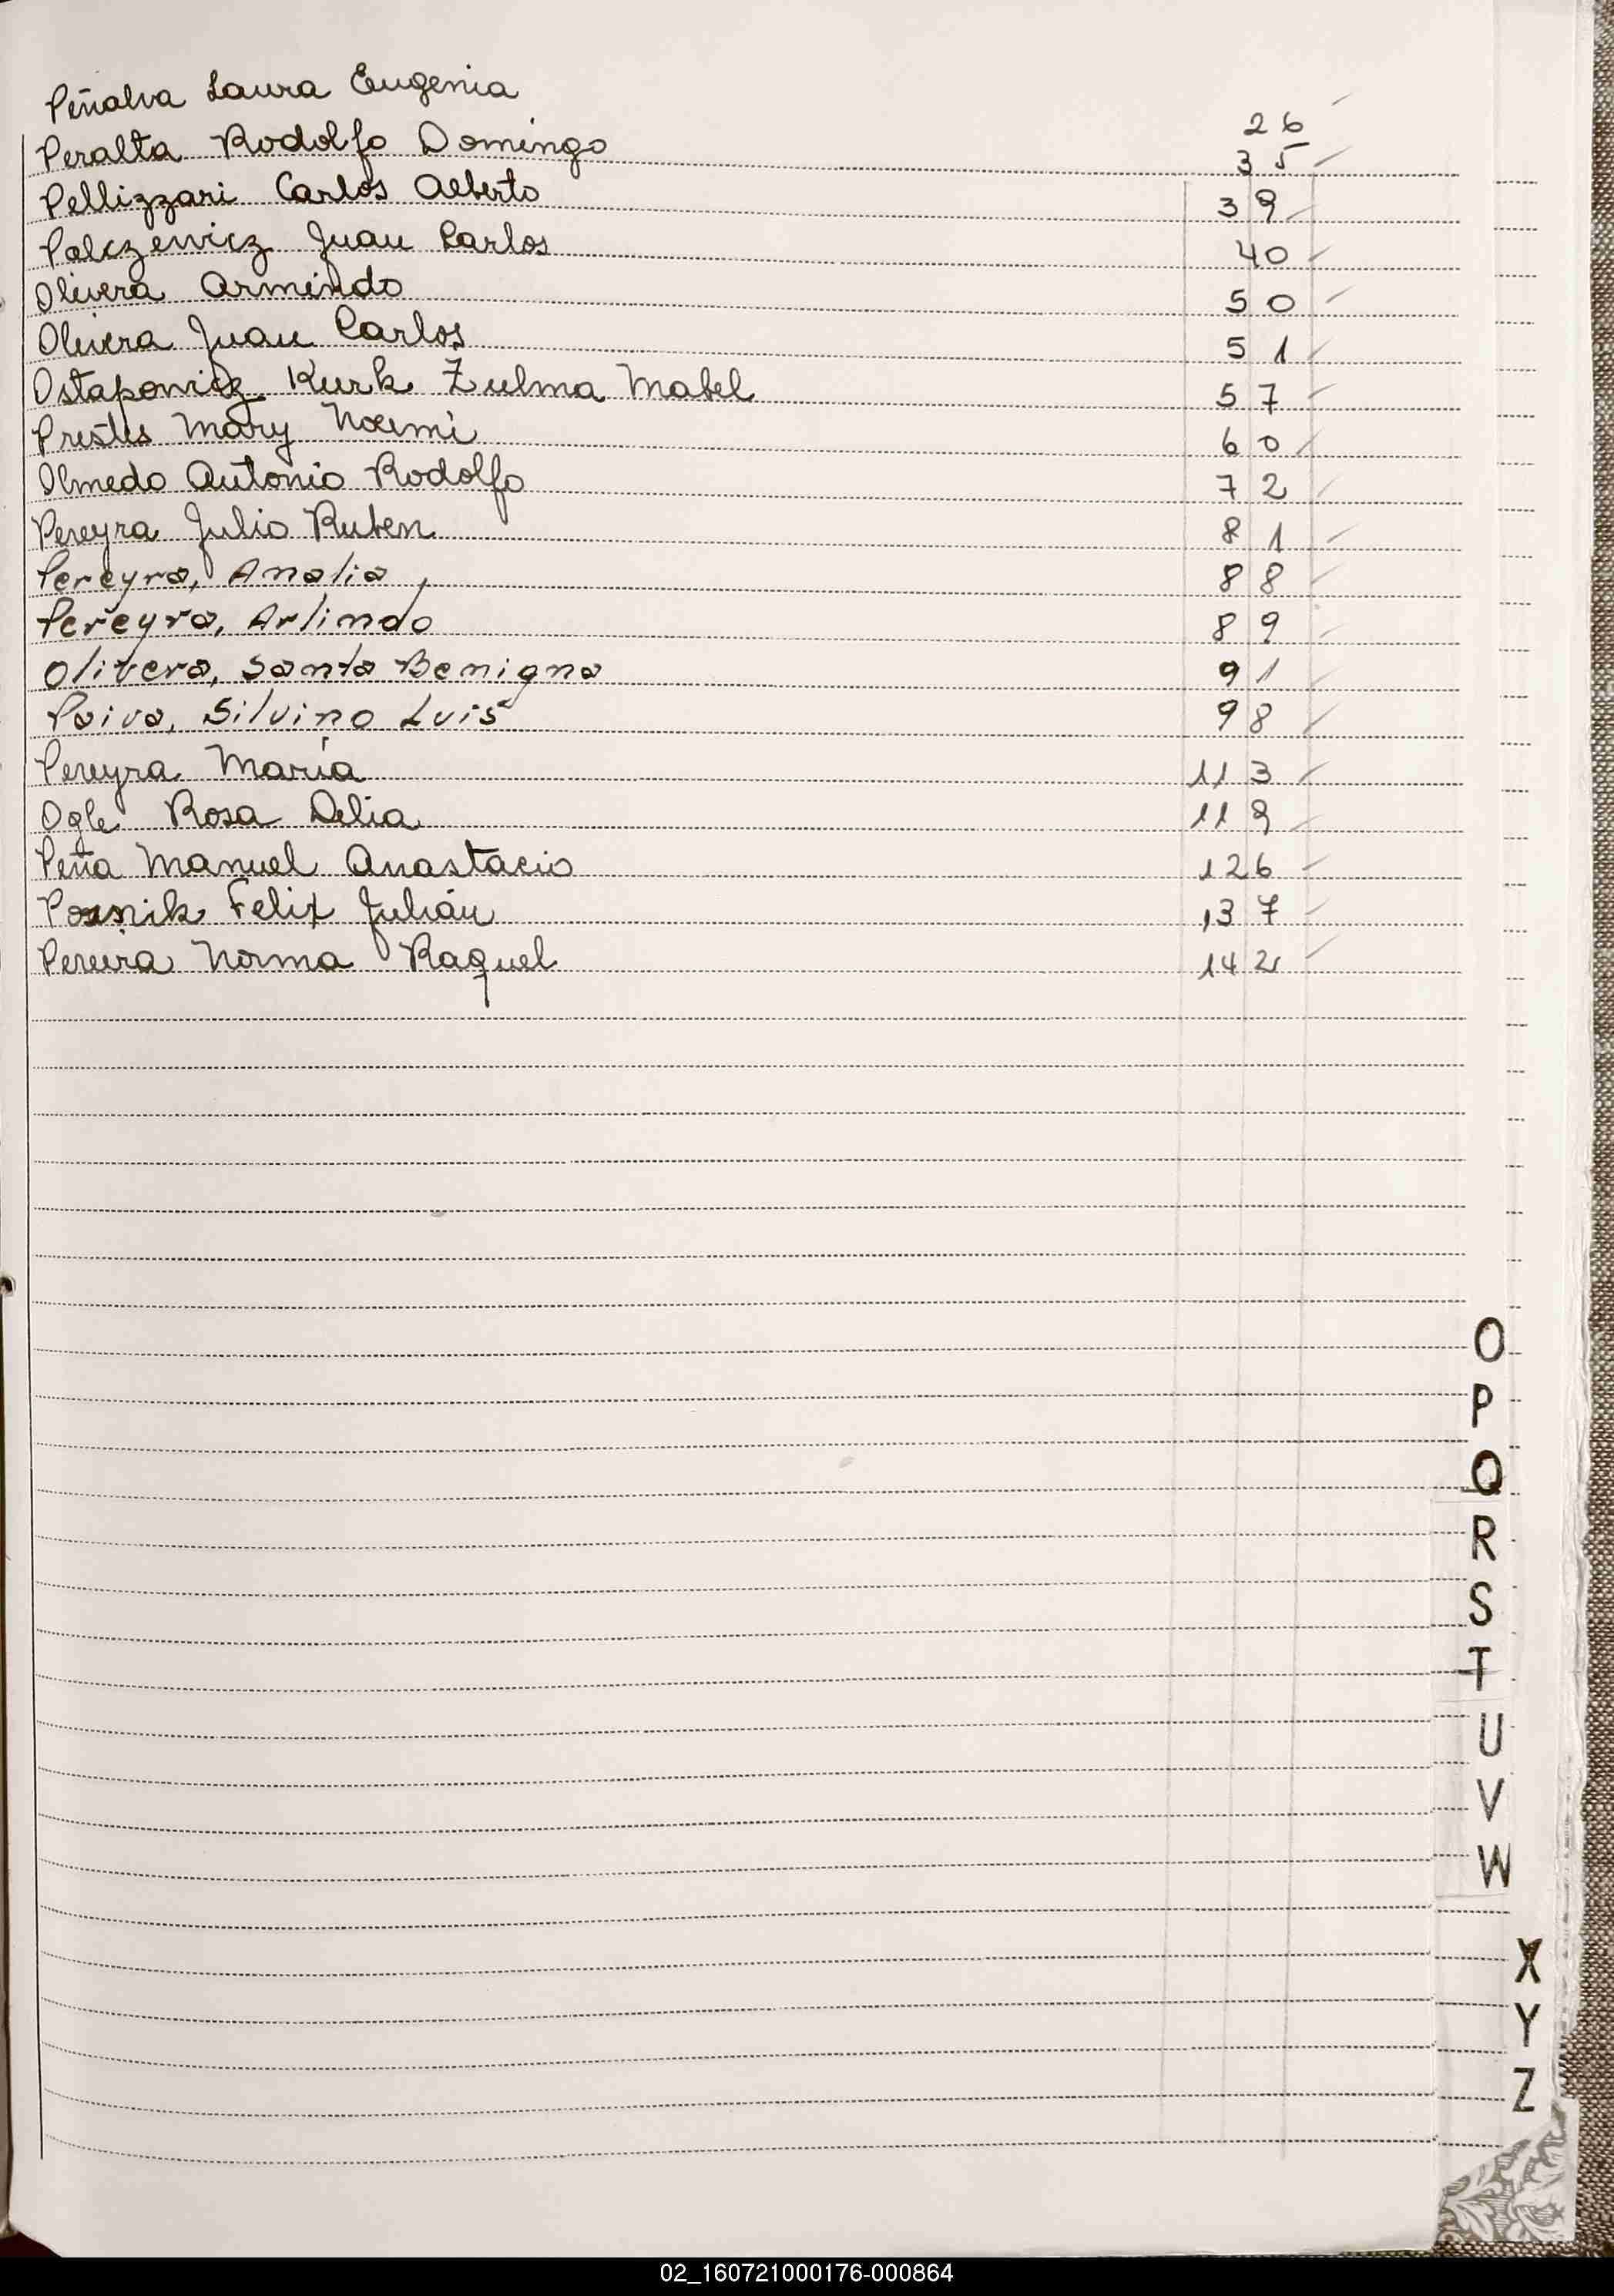 Peñalva Laura Eugenia 26
Peralta Rodolfo Domingo 35
Pellizzari Carlos Alberto 39
Palczewicz Juan Carlos 40
Olivera Armindo 50
Olivera Juan Carlos 51
Ostapowicz Kurk Zulma Mabel 57
Prestes Mary Noemi 60
Olmedo Antonio Rodolfo 72
Pereyra Julio Ruben 81
Pereyra, Analia 88
Pereyra, Arlindo 89
Olivera, Santa Benigna 91
Paiva, Silvino Luis 98
Pereyra María 113
Ogle Rosa Delia 119
Peña Manuel Anastacio 126
Felix Julián 137
Pereira Norma Raquel 142
O
P
Q
R
S
T
U
V
W
X
Y
Z
02_160721000176-000864